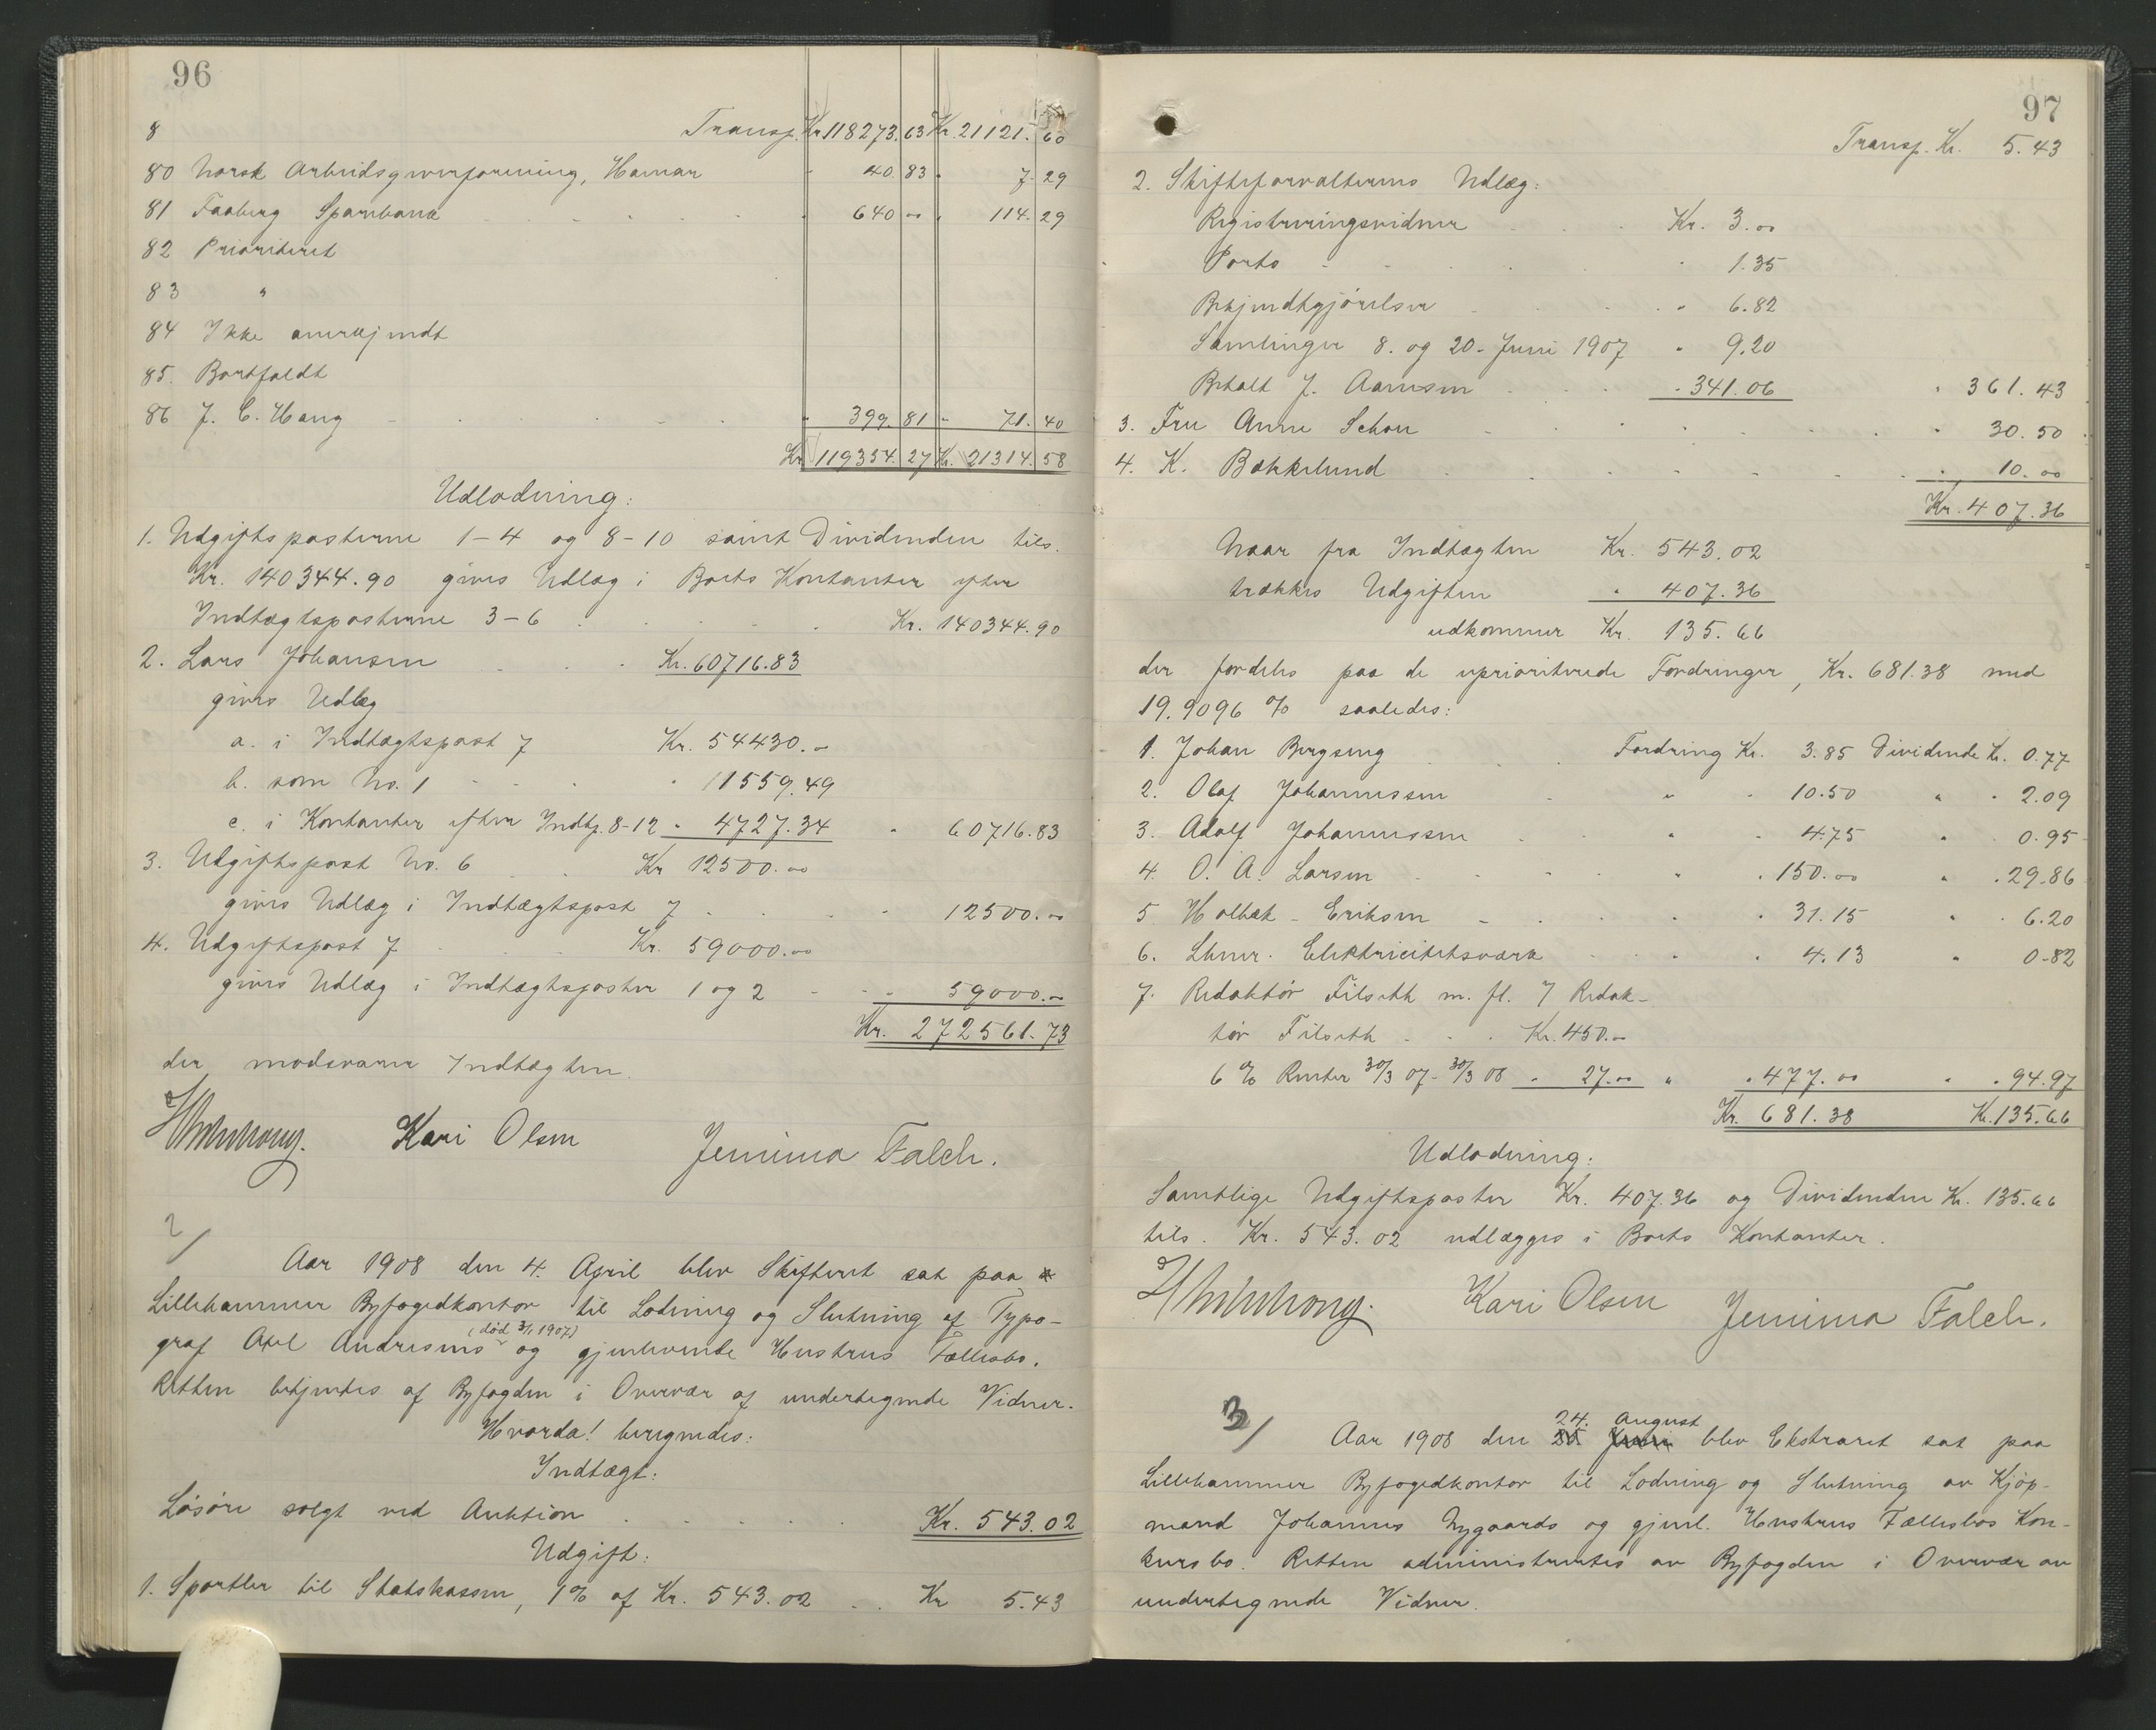 96
8 Transp. Kr. 118273.63 Kr. 21121.60
80 Norsk Arbeidsgiverforening, Hamar " 40.83 " 7.29
81 Faaberg Sparebank " 640.00 " 114.29
82 Prioriteret
83 "
84 Ikke anerkjendt
85. Bortfaldt
86 J. C. Haug " 399.81 " 71.40
Kr. 119354.27 Kr. 21314.58
Udlodning:
1. Udgiftsposterne 1-4 og 8-10 samt Dividenden tils.
Kr. 140344.90 gives Udlæg i Boets Kontanter efter
Indtægtsposterne 3-6 Kr. 140344.90
2. Lars Johansen Kr. 60716.83
gives Udlæg
a. i Indtægtspost 7 Kr. 54430.00
b. som No. 1 " 11559.49
c. i Kontanter efter Indtp. 8-12 " 4727.34 " 60716.83
3. Udgiftspost No. 6 Kr 12500.00
gives Udlæg i Indtægtspost 7 " 12500.00
4. Udgiftspost 7 Kr. 59000.00
gives Udlæg i Indtægtsposter 1 og 2 " 59000.00
Kr. 272561.73
der modsvarer Indtægten.
Kari Olsen Jemima Falch.
2/
Aar 1908 den 4. April blev Skifteret sat paa
Lillehammer Byfogedkontor til Lodning og Slutning af Typo-
graf Axel Andresens (død 3/1 1907) og gjenlevende Hustrus Fællesbo.
Retten betjentes af Byfogden i Overvær af undertegnede Vidner.
Hvorda! beregnedes:
Indtægt:
Løsøre solgt ved Auktion Kr. 543.02
Udgift:
1. Sportler til Statskassen, 1% af Kr. 543.02 Kr 5.43
97
Transp. Kr. 5.43
2. Skifteforvalterens Udlæg:
Registreringsvidner Kr. 3.00
Porto " 1.35
Bekjendtgjørelser " 6.82
Samlinger 8. og 20. Juni 1907 " 9.20
Betalt J. Aanesen " 341.06 " 361.43
3. Fru Anne Schou " 30.50
4. K. Bakkelund " 10.00
Kr. 407.36
Naar fra Indtægten Kr. 543.02
trækkes Udgiften " 407.36
udkommer Kr. 135.66
der fordeles paa de uprioriterede Fordringer, Kr. 681.38 med
19.9096 % saaledes:
1. Johan Bergseng Fordring Kr. 3.85 Dividende Kr. 0.77
2. Olaf Johannessen " " 10.50 " " 2.09
3. Adolf Johannessen " " 4.75 " 0.95
4. O. A. Larsen " " 150.00 " " 29.86
5. Holbæk-Eriksen " 31.15 " " 6.20
6. Lhmr. Elektricitetsværk " 4.13 " 0.82
7. Redaktør Filseth m. fl. 7 Redak-
tør Filseth Kr. 450.00
6 % Renter 30/3 07 - 30/3 08 " 27.00 " " 477.00 " " 94.97
Kr. 681.38 Kr. 135.66
Udlodning:
Samtlige Udgiftsposter Kr. 407.36 og Dividenden Kr. 135.66
tils. Kr. 543.02 udlægges i Boets Kontanter.
Kari Olsen Jemima Falch.
3/
Aar 1908 den 24. August blev Ekstraret sat paa
Lillehammer Byfogedkontor til Lodning og Slutning av Kjøp-
mand Johannes Nygaards og gjenl. Hustrus Fællesbos Kon-
kursbo. Retten administrertes av Byfogden i Overvær av
undertegnede Vidner.